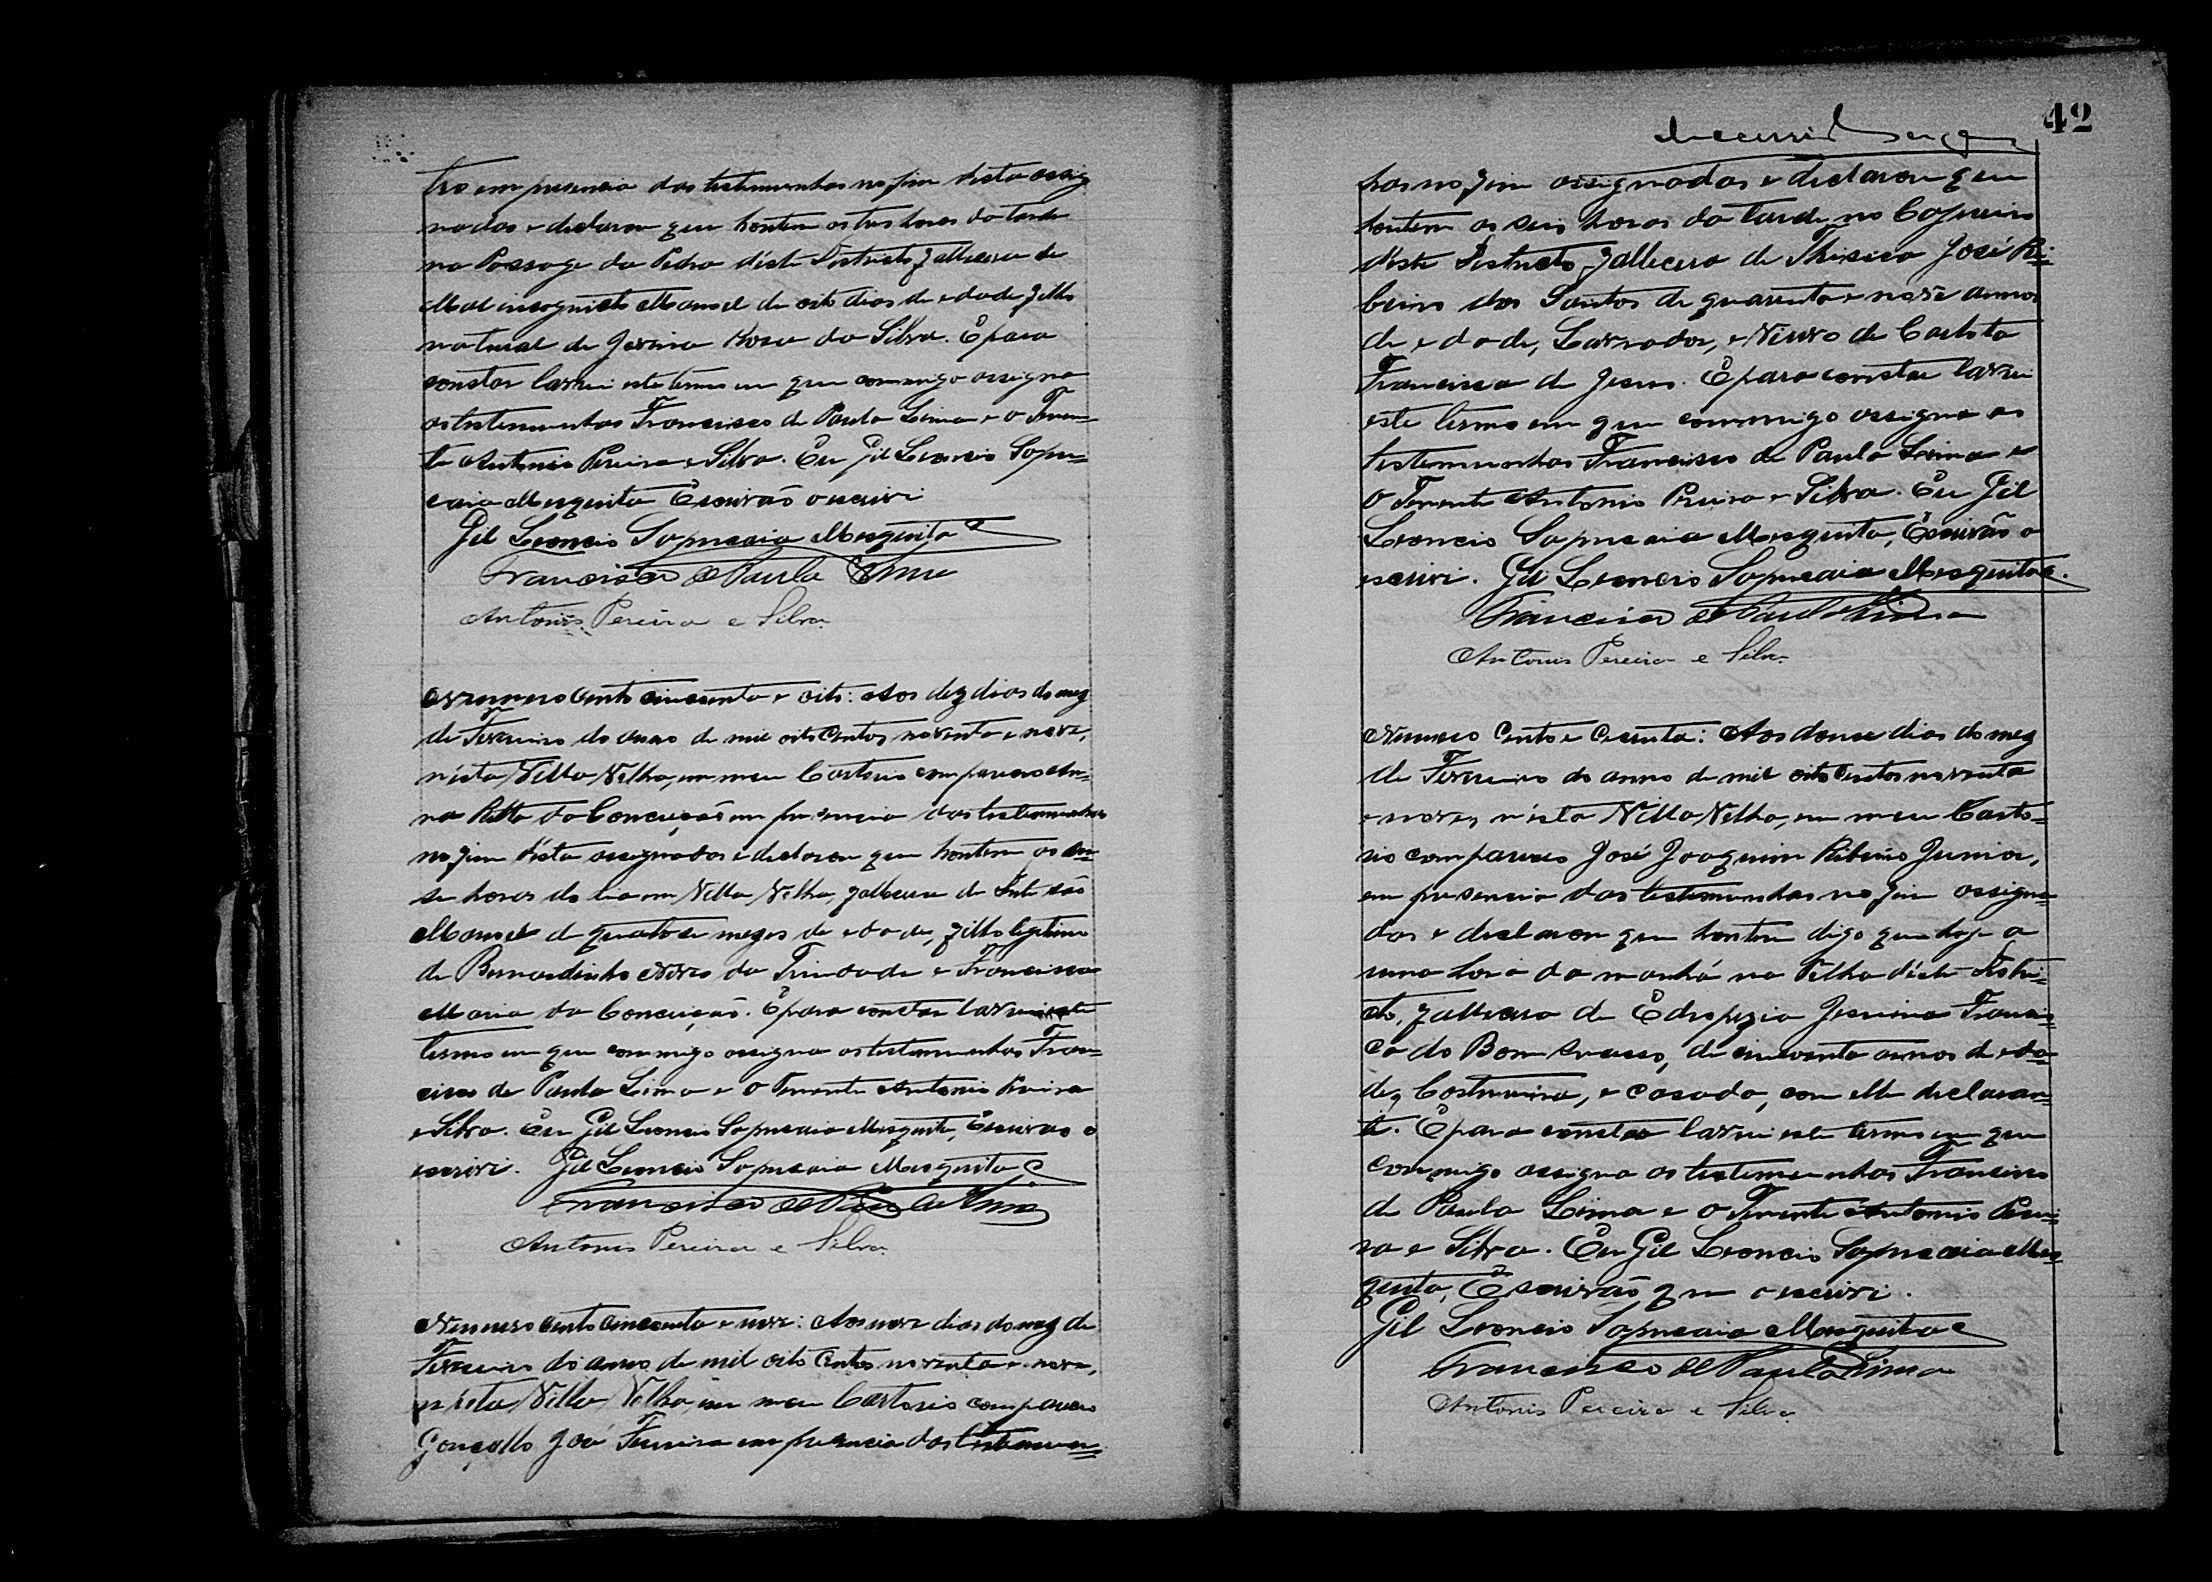 tro em presencia das testemunhas no fim desta assig
nadas e declarou que hontem as tres horas da tarde
na Passage da Pedra déste Districto, falleceu de
Mal incognito Manoel de oito dias de edade filho
natural de Jovina Rosa da Silva. E para
constar lavrei este termo em que commigo assigna
as testemunhas Francisco de Paula Lima e o Tenen=
te Antonio Pereira e Silva. Eu Gil Leoncio Sapu=
caia Mesquita Escrivão o escrivi
Gil Leoncio Sapucaia Mesquita
Francisco de Paula Lima
Antonio Pereira e Silva
Numero cento cincoenta e oito: Aos dez dias do mez
de Fevereiro do anno de mil oito centos noventa e nove,
nésta Villa Velha, em meu Cartorio compareceu An=
na Ritta da Conceição em presencia das testemunhas
no fim désta assignadas e declarou que hontem as on=
se horas do dia em Villa Velha, falleceu de
Manoel de quatorse mezes de edade, filho legitimo
de Bernardinho Neves da Trindade e Francisca
Maria da Conceição. E para constar lavrei este
termo em que commigo assigna as testemunhas Fran=
cisco de Paula Lima e o Tenente Antonio Pereira
e Silva. Eu Gil Leoncio Sapucaia Mesquita, Escrivão o
escrivi. Gil Leoncio Sapucaia Mesquita
Francisco de Paula Lima
Antonio Pereira e Silva
Numero cento cincoenta e nove: Aos nove dias do mez de
Fevereiro do anno de mil oito centos noventa e nove,
nésta Villa Velha, em meu Cartorio compareceu
Gonçallo José Ferreira em presencia das testemun=
42
has no fim assignadas e declarou que
hontem as seis horas da tarde no Cajueiro
déste Districto, falleceu de Thisica José Ri=
beiro dos Santos de quarenta e nove annos
de edade, Lavrador, e Viuvo de Carlota
Francisca de Jesus. E para constar lavrei
este termo em que commigo assigna as
testemunhas Francisco de Paula Lima e
o Tenente Antonio Pereira e Silva. Eu Gil
Leoncio Sapucaia Mesquita, Escrivão o
escrivi. Gil Leoncio Sapucaia Mesquita.
Francisco de Paula Lima
Antonio Pereira e Silva
Numero Cento e Cecenta: Aos douse dias do mez
de Fevereiro do anno de mil oito centos noventa
e nove, nésta Villa Velha, em meu Carto=
rio compareceu José Joaquim Ribeiro Junior,
em presencia das testemunhas no fim assigna=
das e declarou que hontem digo que hoje a
uma hora da manhã na Velha déste Distri=
cto, falleceu de Edropezia Jesuina Francis=
ca do Bom Sucesso, de cincoenta annos de eda=
de, Costureira, e casada, com elle declaran=
te. E para constar lavrei este termo em que
commigo assigna as testemunhas Francisco
de Paula Lima e o Tenente Antonio Perei=
ra e Silva. Eu Gil Leoncio Sapucaia Mes=
quita, Escrivão que o escrivi.
Gil Leoncio Sapucaia Mesquita
Francisco de Paula Lima
Antonio Pereira e Silva